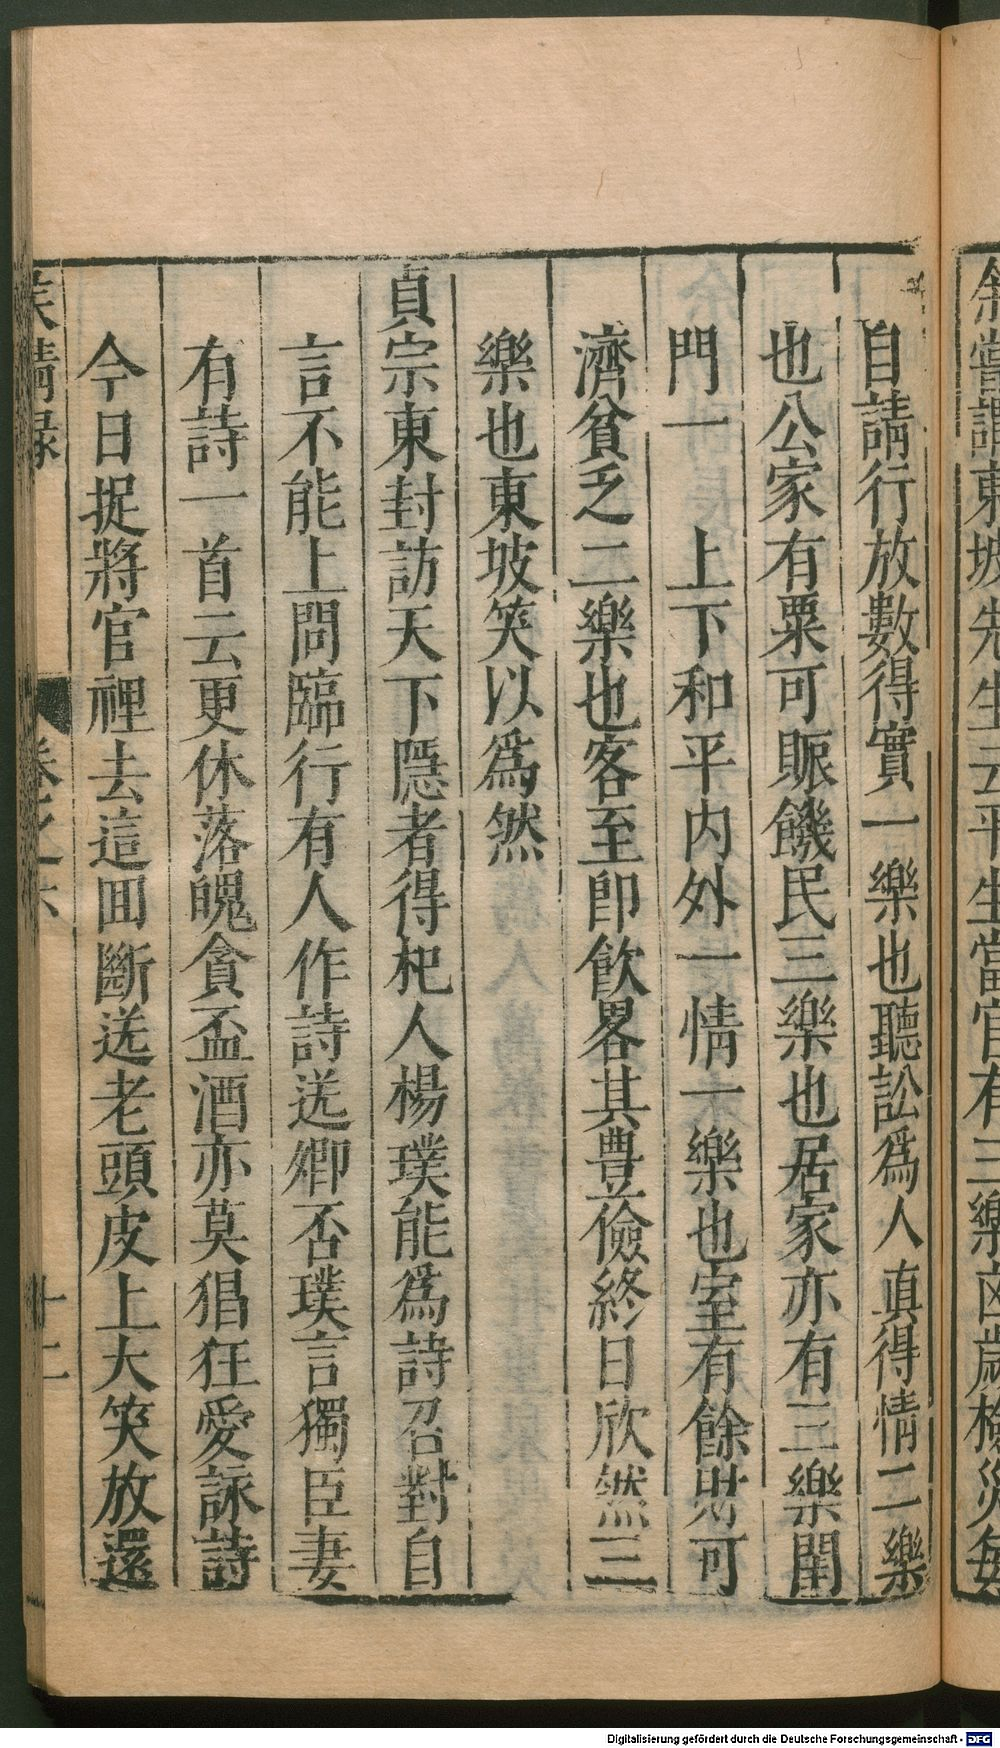 余嘗謂東坡先生云平生當官有三樂凶歲檢災每
自請行放數得實一樂也聽訟爲人真得情二樂
也公家有粟可賑饑民三樂也居家亦有三樂閨
門一 上下和平内外一情一樂也室有餘財可
濟貧乏二樂也客至即飲畧其豊儉終日欣然三
樂也東坡笑以爲然
真宗東封訪天下隱者得杞人楊璞能爲詩召對自
言不能上問臨行有人作詩送卿否璞言獨臣妻
有詩一首云更休落魄貪盃酒亦莫猖狂愛詠詩
今日捉將官裡去這囬斷送老頭皮上大笑放還
侯鯖録 卷之六 十二
Digitalisierung gefördert durch die Deutsche Forschungsgemeinschaft - DFG